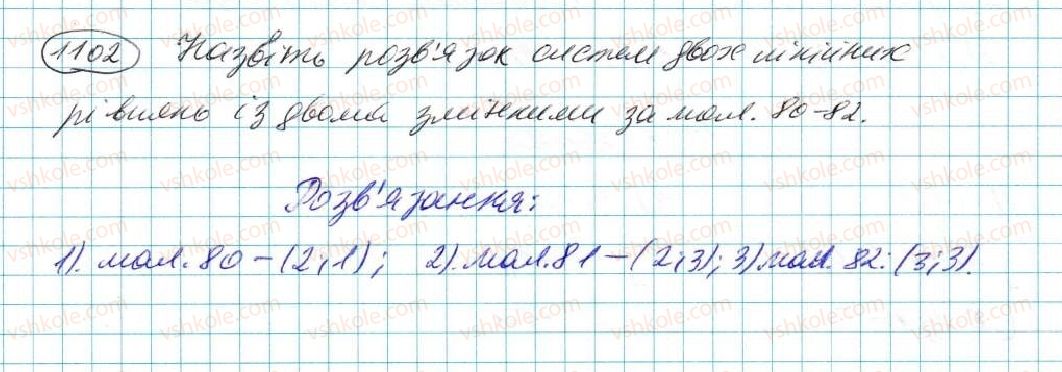 1102 Назвіть розв'язок систем двох лінійних
рівнянь із двома змінними за мал. 80-82.
Розв'язання:
1). мал. 80 – (2;1); 2). мал. 81 – (2;3); 3) мал. 82: (3;3).